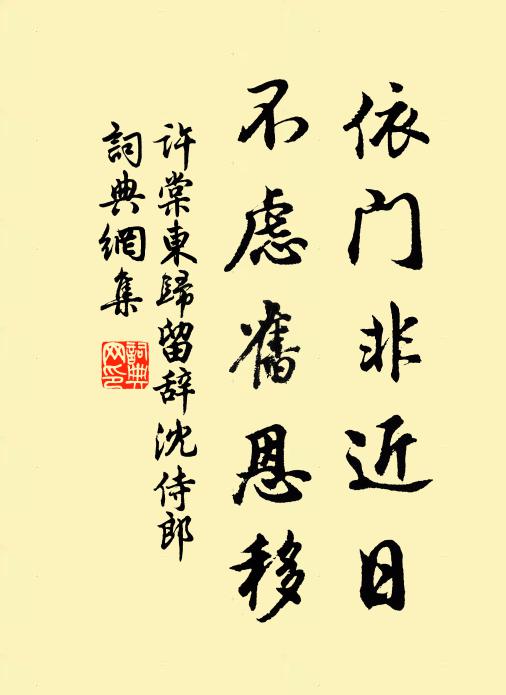 依门非近日
不虑旧恩移
许棠東歸留辞沈侍郎
詞典網集
詞典
网印